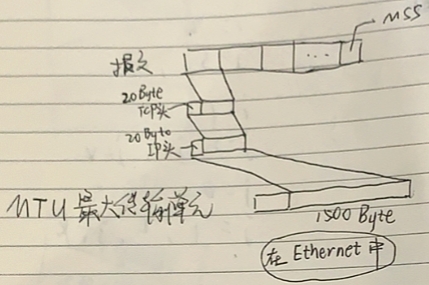 MSS
报文
...
20Byte
TCP头
20Byte
IP头
MTU 最大传输单元
1500 Byte
在 Ethernet 中